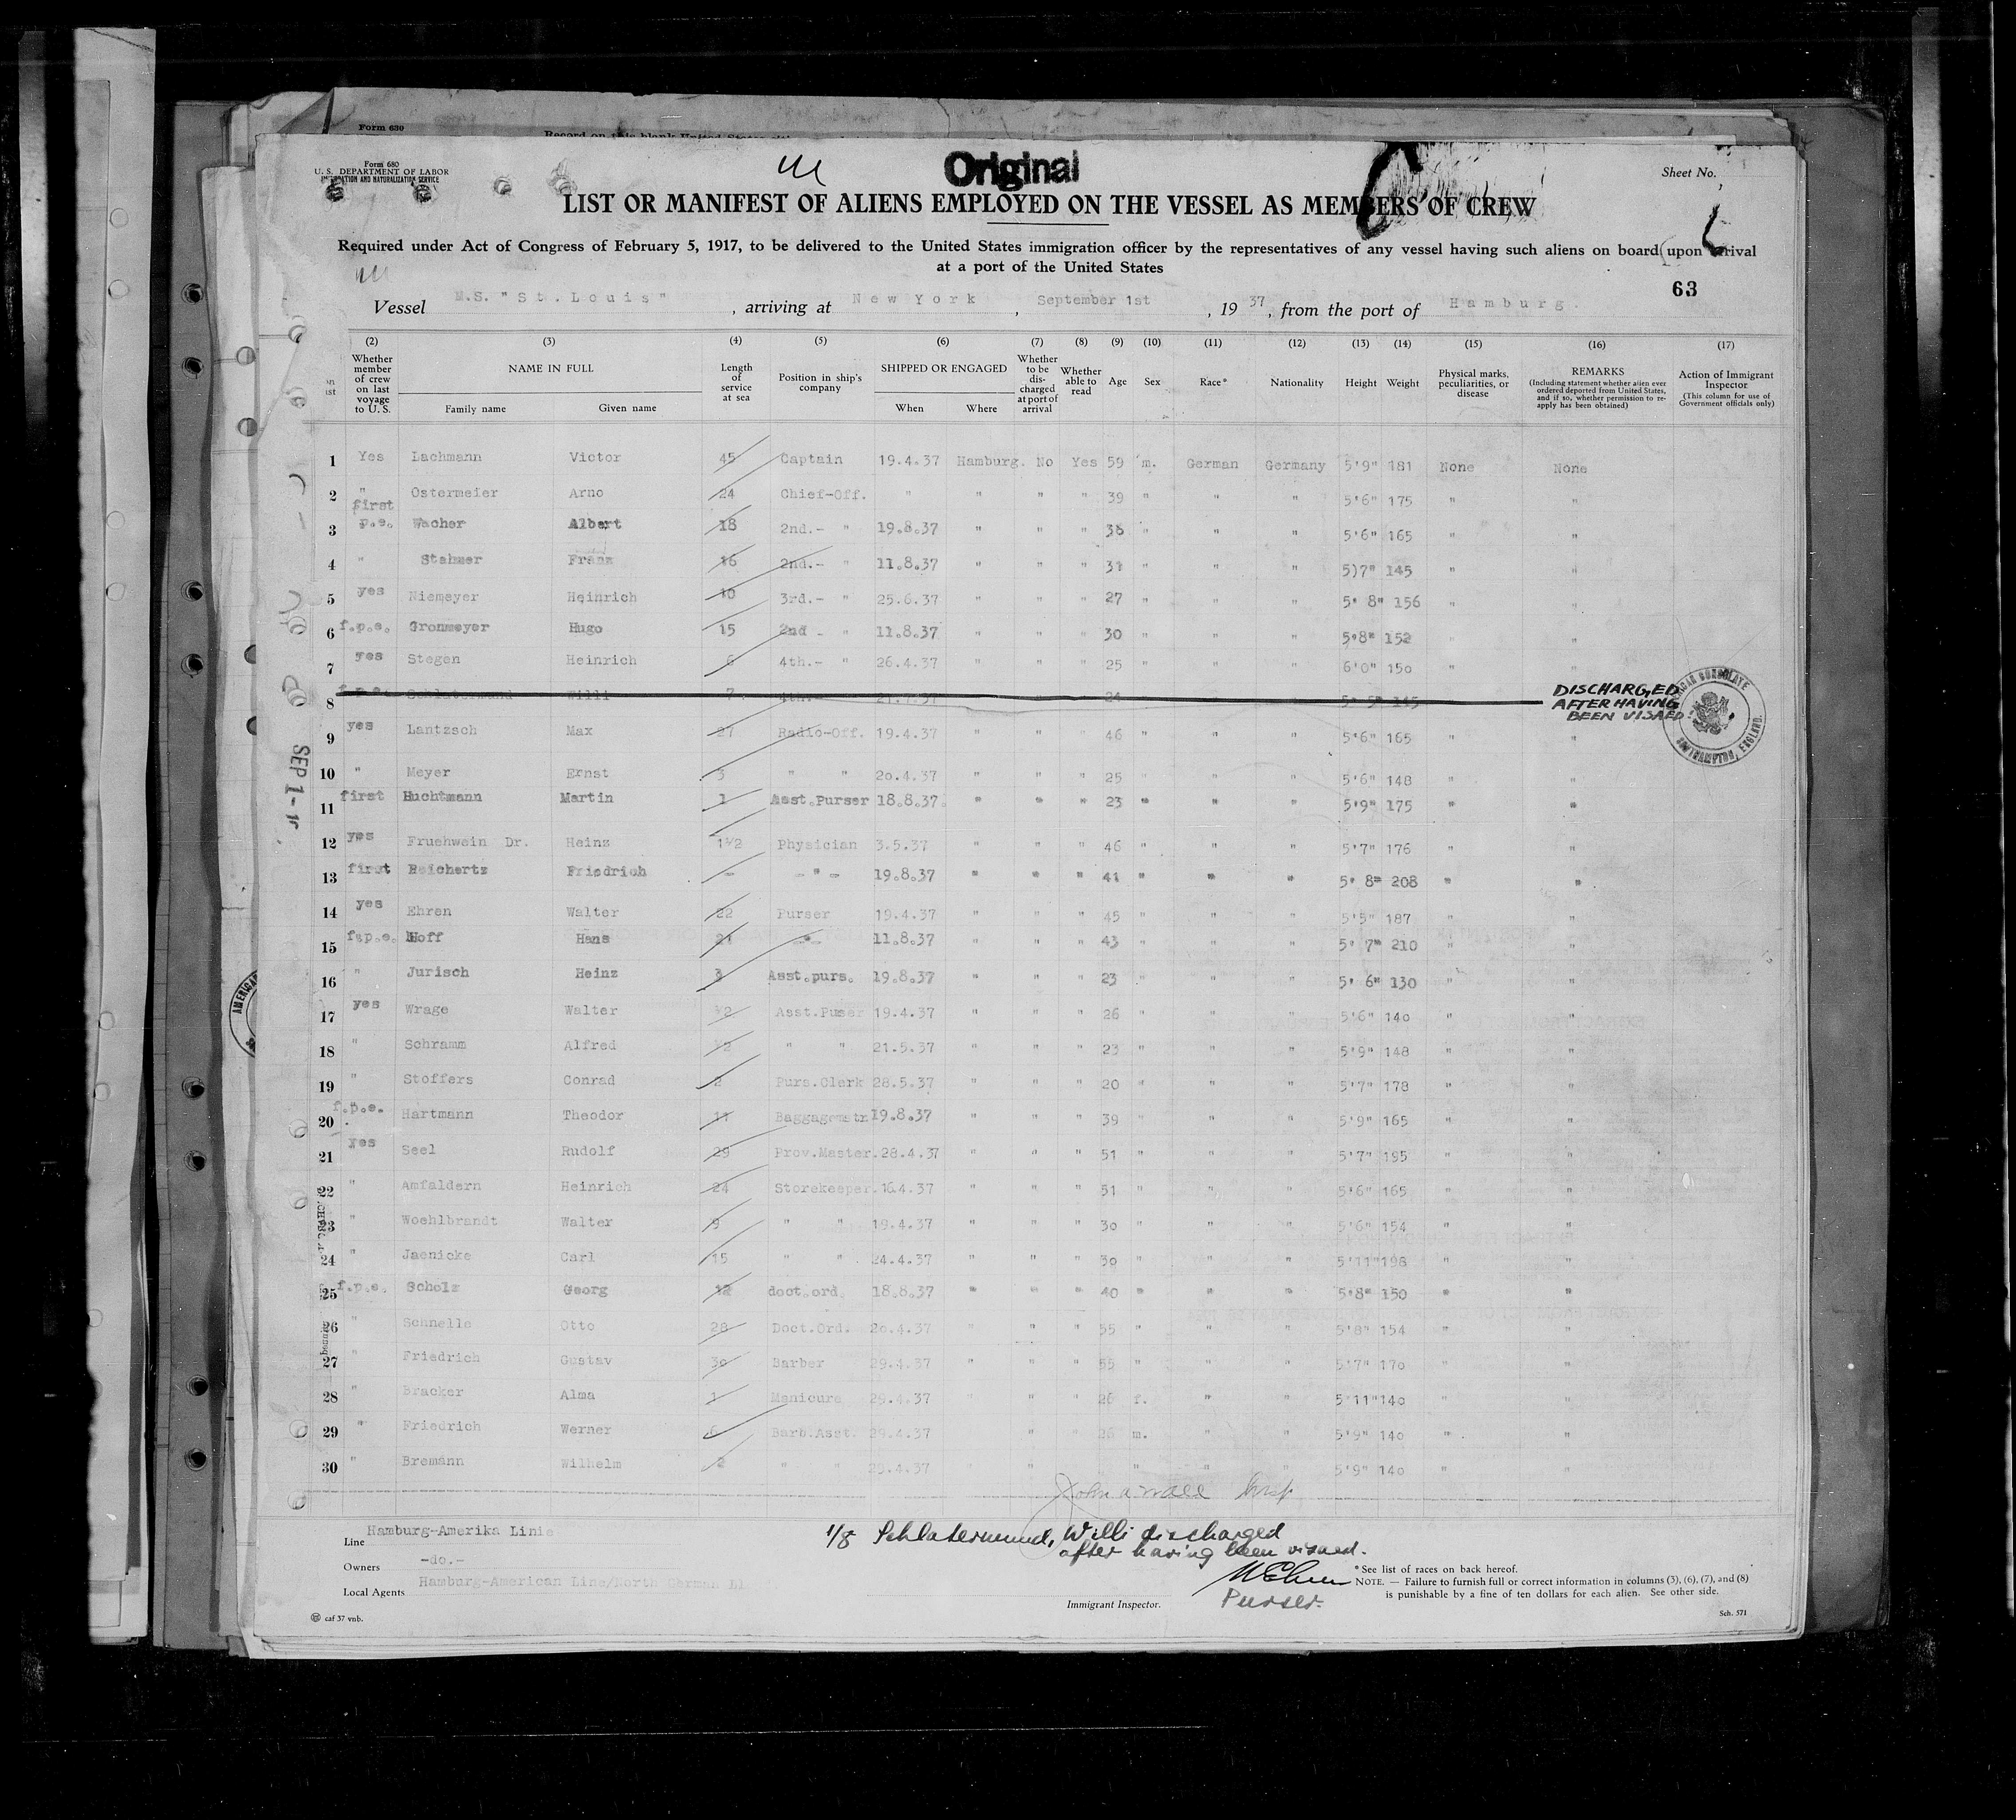 Form 630
Form 680
U. S. DEPARTMENT OF LABOR
IMMIGRATION AND NATURALIZATION SERVICE
Original
Sheet No.
LIST OR MANIFEST OF ALIENS EMPLOYED ON THE VESSEL AS MEMBERS OF CREW
Required under Act of Congress of February 5, 1917, to be delivered to the United States immigration officer by the representatives of any vessel having such aliens on board upon arrival
at a port of the United States
63
Vessel M.S. "St. Louis" , arriving at New York , September 1st , 19 37 , from the port of Hamburg.
(2) (3) (4) (5) (6) (7) (8) (9) (10) (11) (12) (13) (14) (15) (16) (17)
Whether member of crew on last voyage to U. S. NAME IN FULL Family name Given name Length of service at sea Position in ship's company SHIPPED OR ENGAGED When Where Whether to be discharged at port of arrival Whether able to read Age Sex Race* Nationality Height Weight Physical marks, peculiarities, or disease REMARKS (Including statement whether alien ever ordered deported from United States, and if so, whether permission to reapply has been obtained) Action of Immigrant Inspector (This column for use of Government officials only)
1 Yes Lachmann Victor 45 Captain 19.4.37 Hamburg. No Yes 59 m. German Germany 5'9" 181 None None
2 " Ostermeier Arno 24 Chief-Off. " " " " 39 " " " 5'6" 175 " "
3 first p.e. Wacher Albert 18 2nd.- " 19.8.37 " " " 38 " " " 5'6" 165 " "
4 " Stahmer Franz 16 2nd.- " 11.8.37 " " " 31 " " " 5)7" 145 " "
5 yes Niemeyer Heinrich 10 3rd.- " 25.6.37 " " " 27 " " " 5' 8" 156 " "
6 f.p.e. Gronmeyer Hugo 15 2nd - " 11.8.37 " " " 30 " " " 5'8" 152 " "
7 yes Stegen Heinrich 6 4th.- " 26.4.37 " " " 25 " " " 6'0" 150 " "
8 f.p.e. Schlatermund Willi 7 4th.- 21.7.37 24 5' 5" 145 DISCHARGED AFTER HAVING BEEN VISAED
AMERICAN CONSULATE SOUTHAMPTON, ENGLAND.
9 yes Lantzsch Max 27 Radio-Off. 19.4.37 " " " 46 " " " 5'6" 165 " "
10 " Meyer Ernst 3 " " 20.4.37 " " " 25 " " " 5'6" 148 " "
11 first Huchtmann Martin 1 Asst.Purser 18.8.37. " " " 23 " " " 5'9" 175 " "
12 yes Fruehwein Dr. Heinz 1½ Physician 3.5.37 " " " 46 " " " 5'7" 176 " "
13 first Reichertz Friedrich - -"- 19.8.37 " " " 41 " " " 5' 8" 208 " "
14 yes Ehren Walter 22 Purser 19.4.37 " " " 45 " " " 5'5" 187 " "
15 f.p.e. Hoff Hans 21 -"- 11.8.37 " " " 43 " " " 5' 7" 210 " "
16 " Jurisch Heinz 3 Asst.purs. 19.8.37 " " " 23 " " " 5' 6" 130 " "
17 yes Wrage Walter ½ Asst.Purser 19.4.37 " " " 26 " " " 5'6" 140 " "
18 " Schramm Alfred ½ " " 21.5.37 " " " 23 " " " 5'9" 148 " "
19 " Stoffers Conrad 2 Purs.Clerk 28.5.37 " " " 20 " " " 5'7" 178 " "
20 f.p.e. Hartmann Theodor 11 Baggagemstr 19.8.37 " " " 39 " " " 5'9" 165 " "
21 yes Seel Rudolf 29 Prov.Master. 28.4.37 " " " 51 " " " 5'7" 195 " "
22 " Amfaldern Heinrich 24 Storekeeper. 16.4.37 " " " 51 " " " 5'6" 165 " "
23 " Woehlbrandt Walter 9 " " 19.4.37 " " " 30 " " " 5'6" 154 " "
24 " Jaenicke Carl 15 " " 24.4.37 " " " 30 " " " 5'11" 198 " "
25 f.p.e. Scholz Georg 12 doct.ord. 18.8.37 " " " 40 " " " 5'8" 150 " "
26 " Schnelle Otto 28 Doct.Ord. 20.4.37 " " " 55 " " " 5'8" 154 " "
27 " Friedrich Gustav 30 Barber 29.4.37 " " " 55 " " " 5'7" 170 " "
28 " Bracker Alma 1 Manicure 29.4.37 " " " 26 f. " " 5'11" 140 " "
29 " Friedrich Werner 6 Barb.Asst. 29.4.37 " " 26 m. " " 5'9" 140 " "
30 " Bremann Wilhelm 2 " " 29.4.37 " " " " " " 5'9" 140 " "
SEP 1 -
Line Hamburg-Amerika Linie
Owners -do.-
Local Agents Hamburg-American Line/North German Ll
1/8 Schlatermund, Willi discharged
after having been visaed.
Purser.
Immigrant Inspector.
* See list of races on back hereof.
NOTE. — Failure to furnish full or correct information in columns (3), (6), (7), and (8)
is punishable by a fine of ten dollars for each alien. See other side.
caf 37 vnb.
Sch. 571